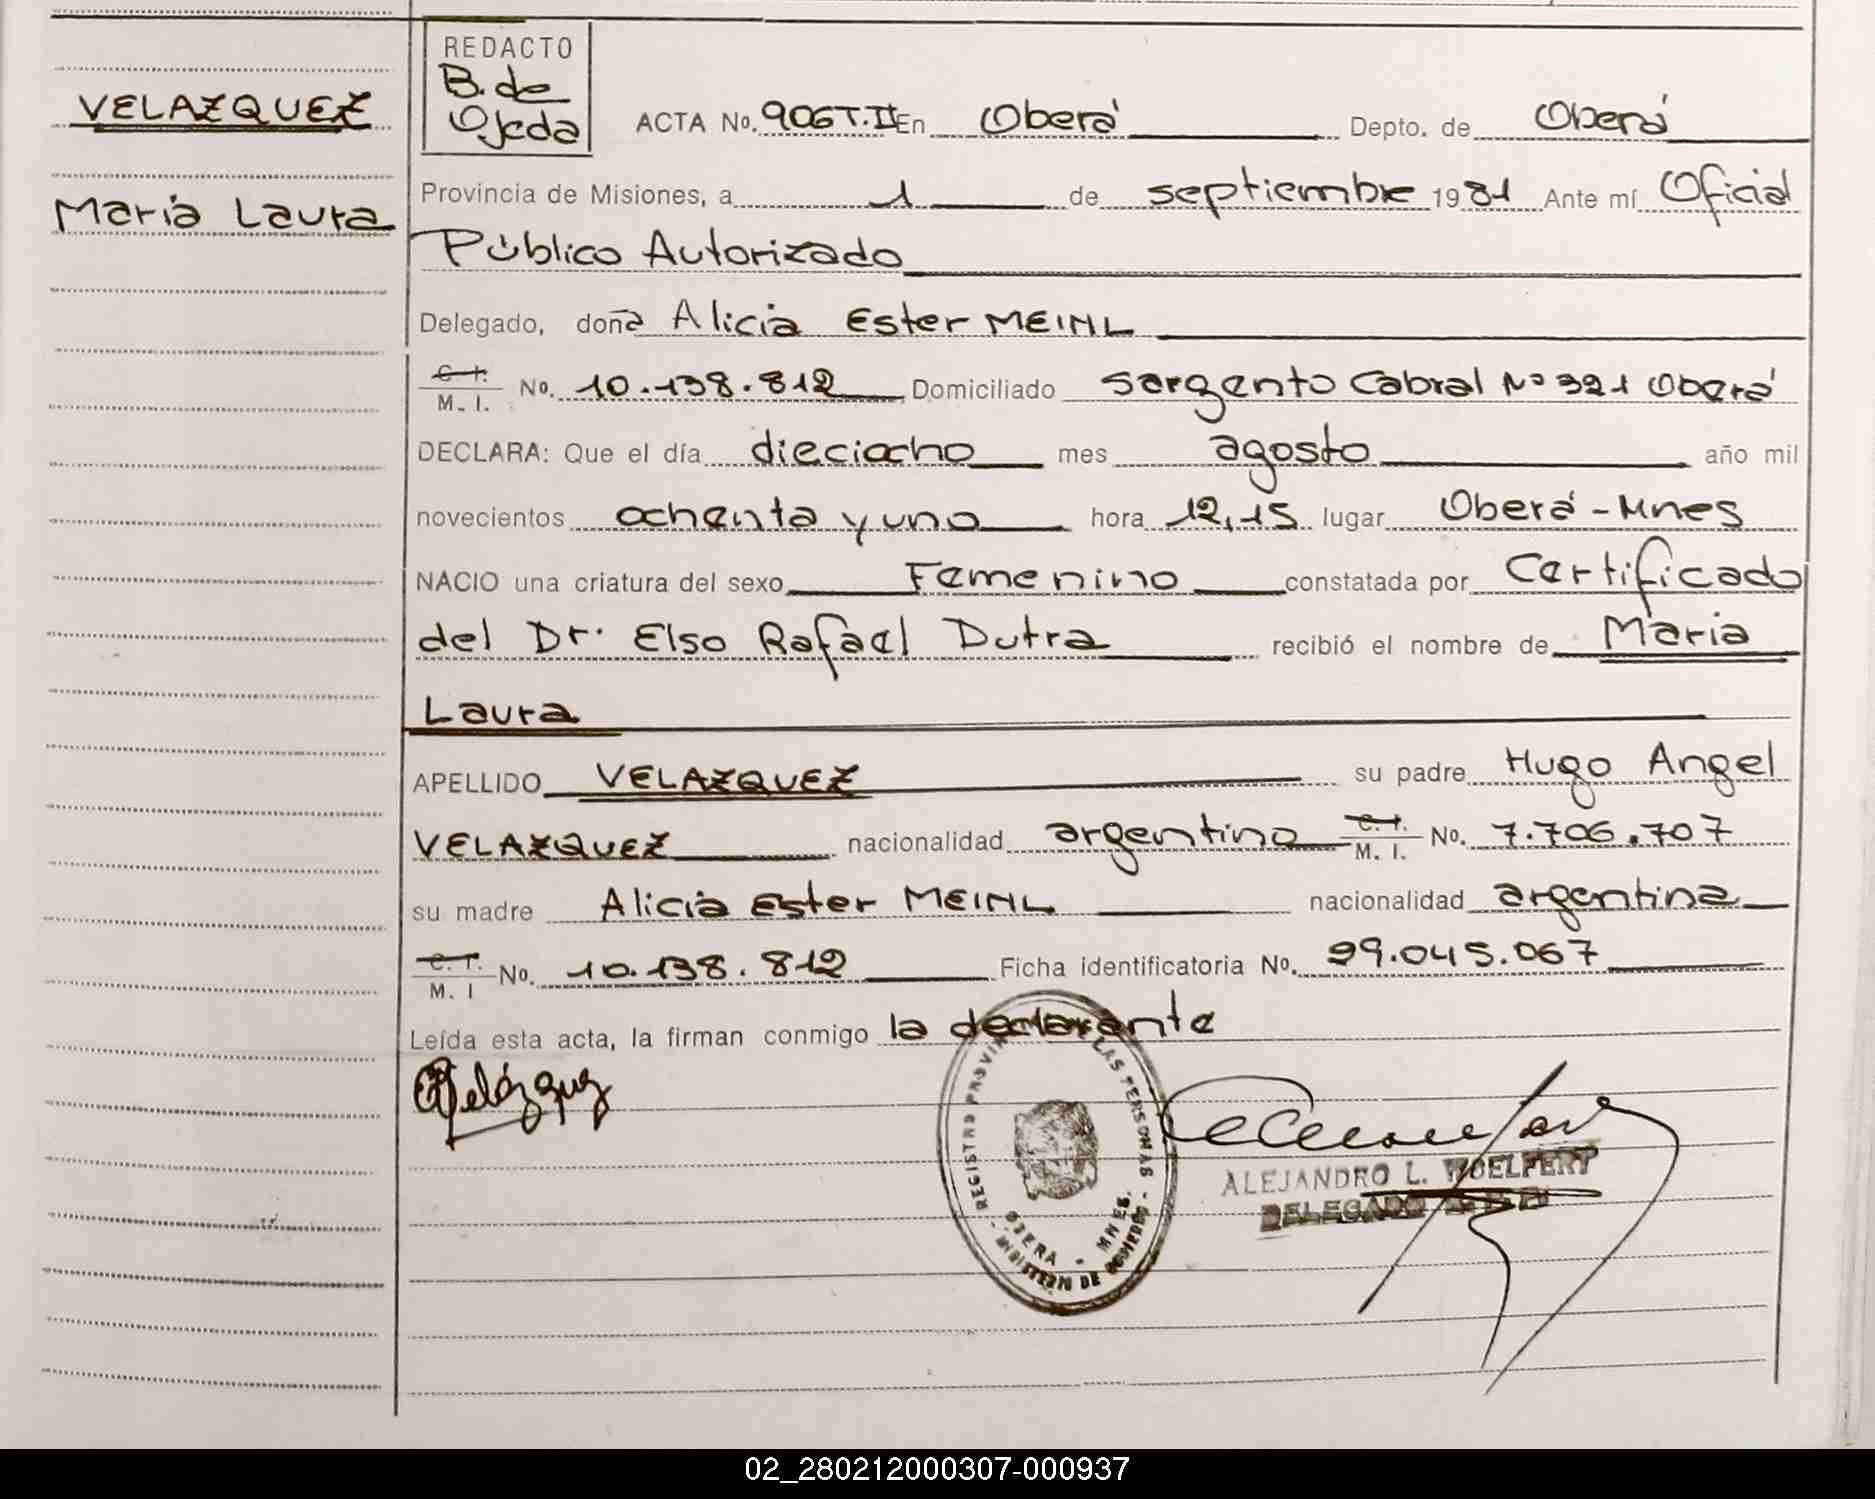 VELAZQUEZ
María Laura
REDACTO
B. de
Ojeda
ACTA No. 906 T. II En Oberá Depto. de Oberá
Provincia de Misiones, a 1 de septiembre 1981 Ante mí Oficial
Público Autorizado
Delegado, doña Alicia Ester MEINL
C.I. M. I. No. 10.138.812 Domiciliado Sargento Cabral Nº 321 Oberá
DECLARA: Que el día dieciocho mes agosto año mil
novecientos ochenta y uno hora 12,15 lugar Oberá - Mnes
NACIO una criatura del sexo Femenino constatada por Certificado
del Dr. Elso Rafael Dutra recibió el nombre de María
Laura
APELLIDO VELAZQUEZ su padre Hugo Angel
VELAZQUEZ nacionalidad argentino C.I. M. I. No. 7.706.707
su madre Alicia Ester MEINL nacionalidad argentina
C.I. M. I No. 10.138.812 Ficha identificatoria No. 29.045.067
Leída esta acta, la firman conmigo la declarante
Velázquez
REGISTRO PROVINCIAL DE LAS PERSONAS
OBERA - MNES.
MINISTERIO DE GOBIERNO
ALEJANDRO L. WOELFERT
DELEGADO
02_280212000307-000937